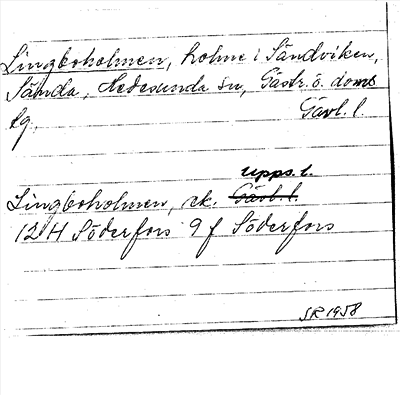 Lingboholmen, holme i Sandviken,
Hedesunda sn, Gästr. ö. doms
Gävl. l.
upps. l.
Lingboholmen, ek. Gävl. l.
12 H Söderfors 9 f Söderfors
SR 1958